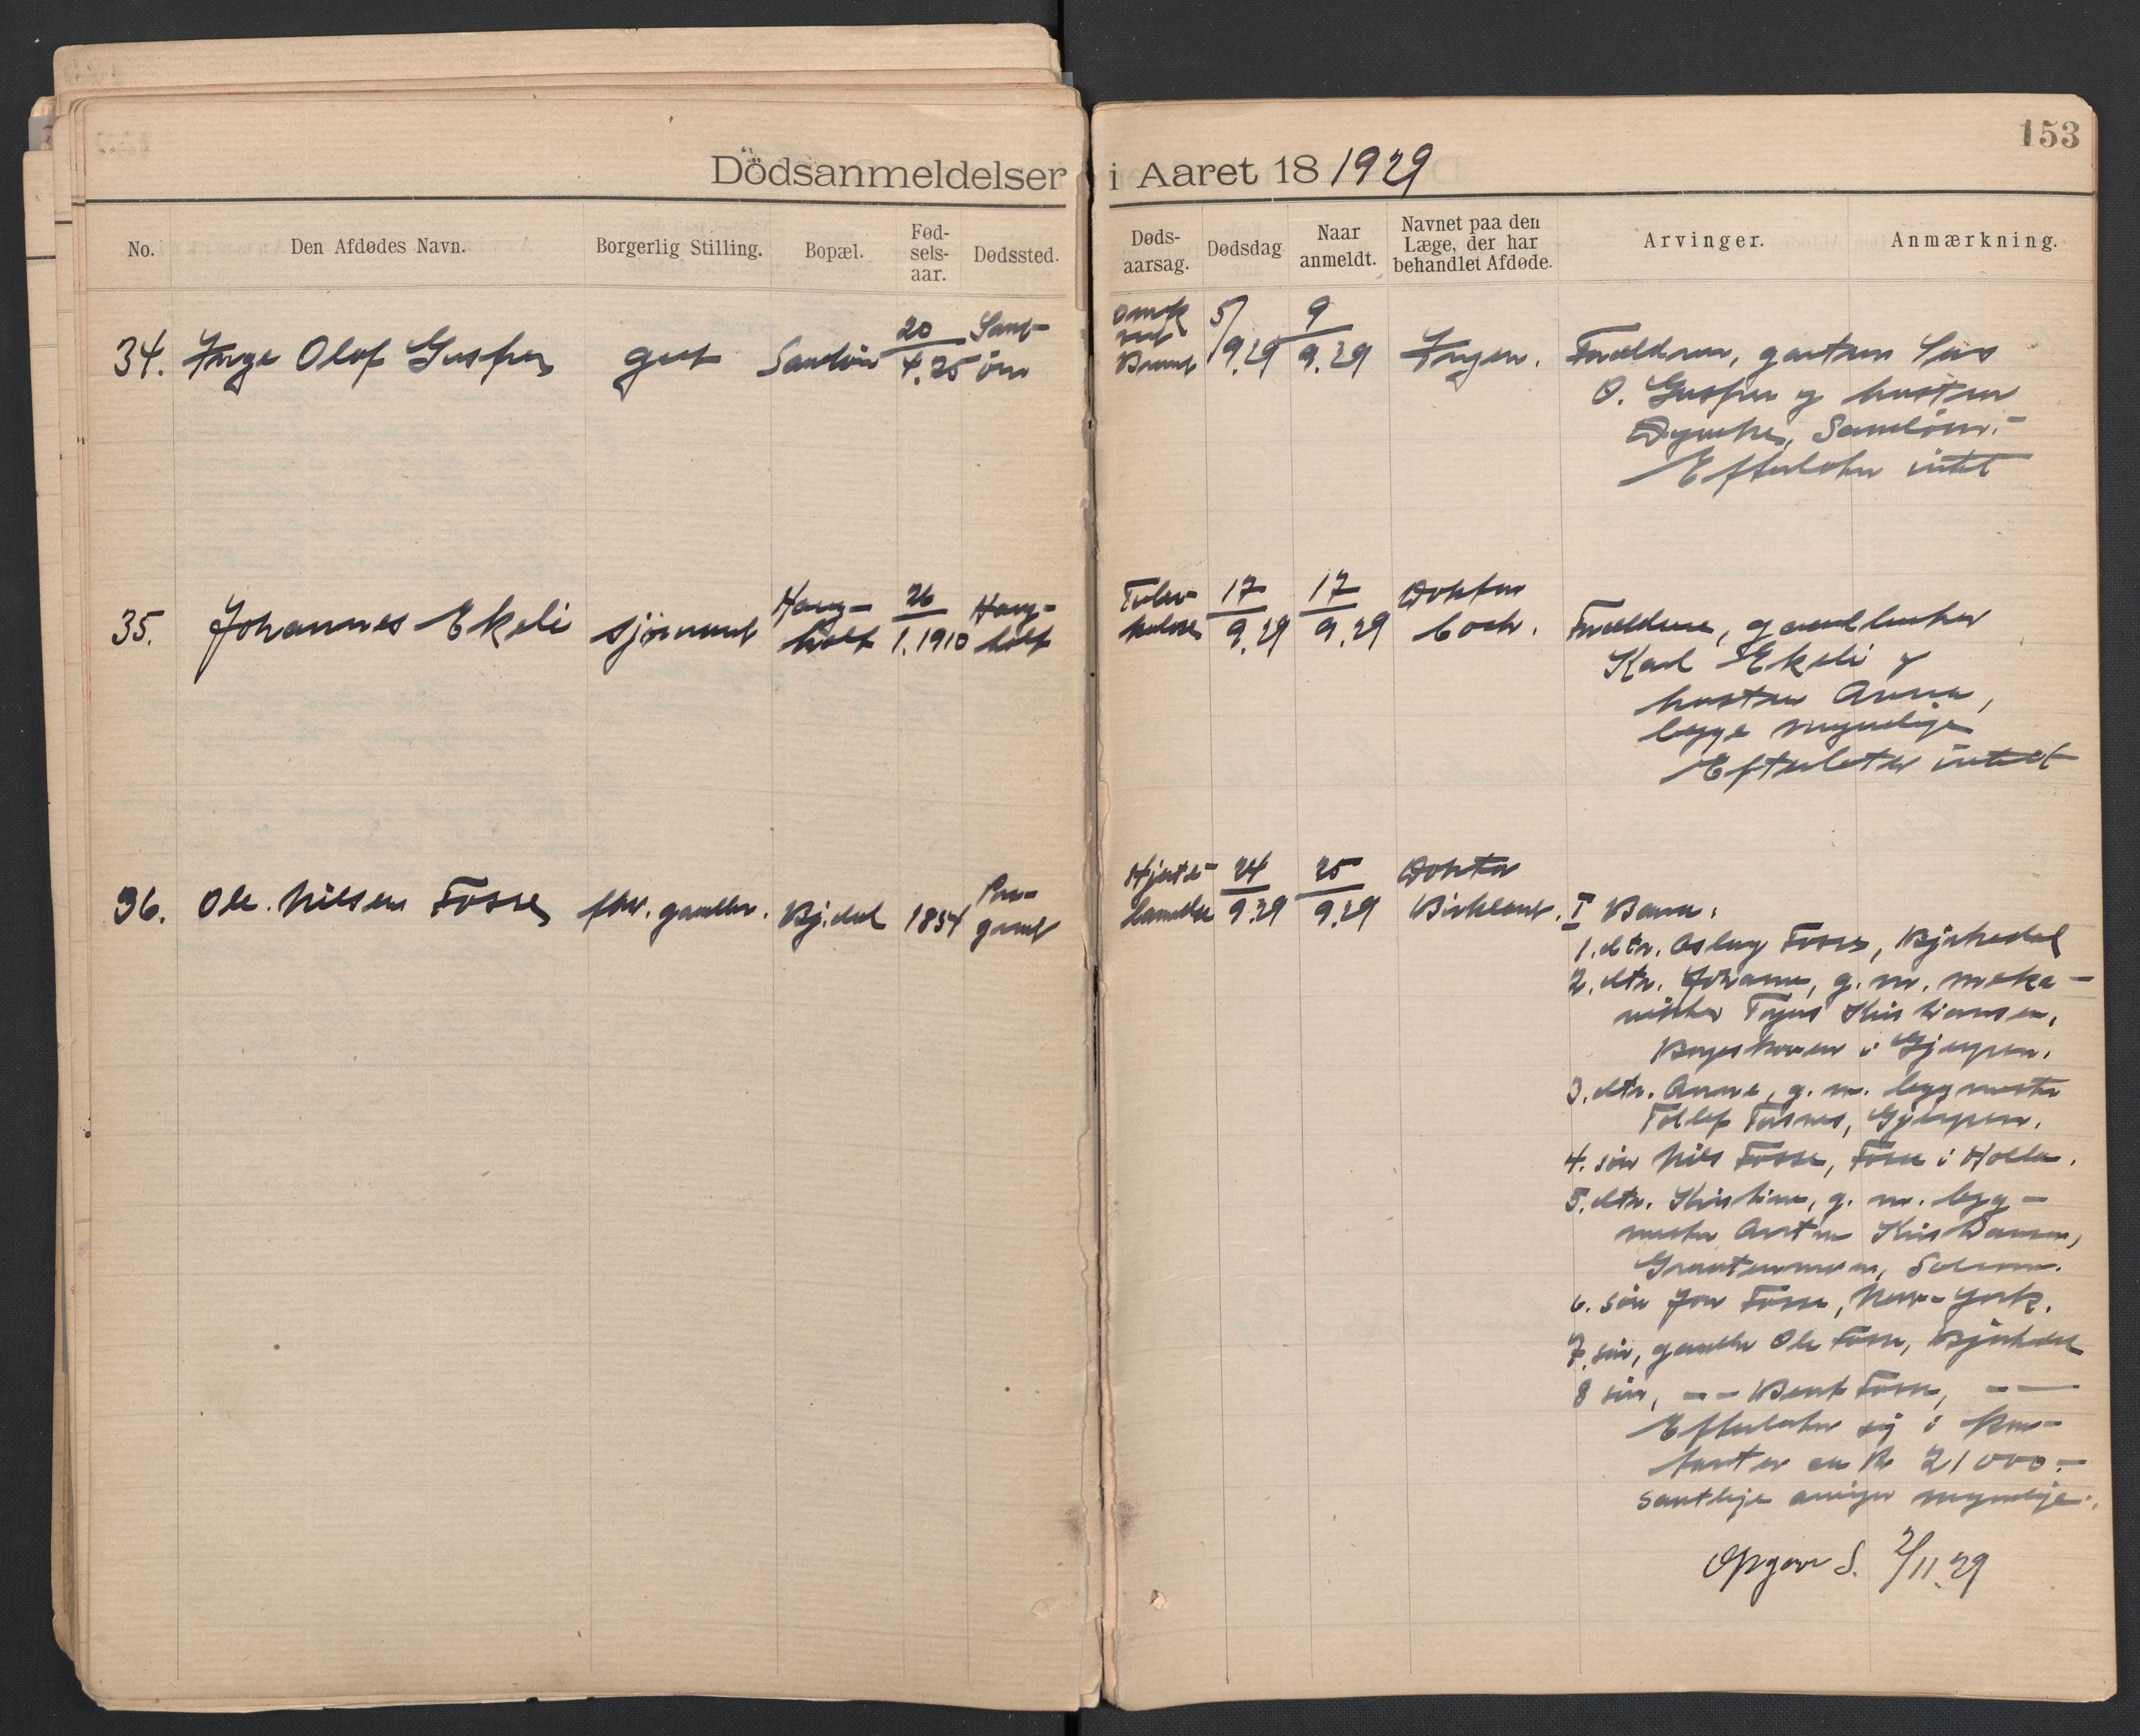 153
Dödsanmeldelser i Aaret 18 1929
No. Den Afdødes Navn. Borgerlig Stilling. Bopæl. Fød-sels-aar. Dødssted. Døds-aarsag. Dødsdag Naar anmeldt. Navnet paa den Læge, der har behandlet Afdøde. Arvinger. Anmærkning.
34. Inge Olof gut Sandöen 20/4.25 Sand-öen 5/9.29 9/9.29 Ingen. Forældrene, gartner
O. og hustru
Efterlater intet
35. Johannes Ekeli sjömand Haug-holt 26/1.1910 Haug-holt Tuber-kulose 17/9.29 17/9.29 Doktor Forældrene, gaardbruker
Karl Ekeli og
hustru Anna,
begge myndige
Efterlater intet
36. Ole Nilsen Fosse fhv. gaardbr. Bj.dal 1834 Hjerte-lammelse 24/9.29 25/9.29 Doktor Birkeland. I Barn:
1. dtr. Aslaug Fosse, Bjørkedal
2. dtr. Johanne, g. m. meka-
niker Kristiansen,
i Gjerpen.
3. dtr. Anne, g. m. bygmester
Gjerpen.
4. sön Nils Fosse, Fosse i Holla.
5. dtr. Kristine, g. m. byg-
mester Anton Kristiansen,
Solum.
6. sön Jon Fosse, New-York.
7. sön, gaardbr. Ole Fosse, Bjørkedal
8 sön, — — Bent Fosse, — —
Efterlater sig i kon-
tanter ca. kr 21000.-
Samtlige arvinger myndige.
Opgave S. 2/11.29